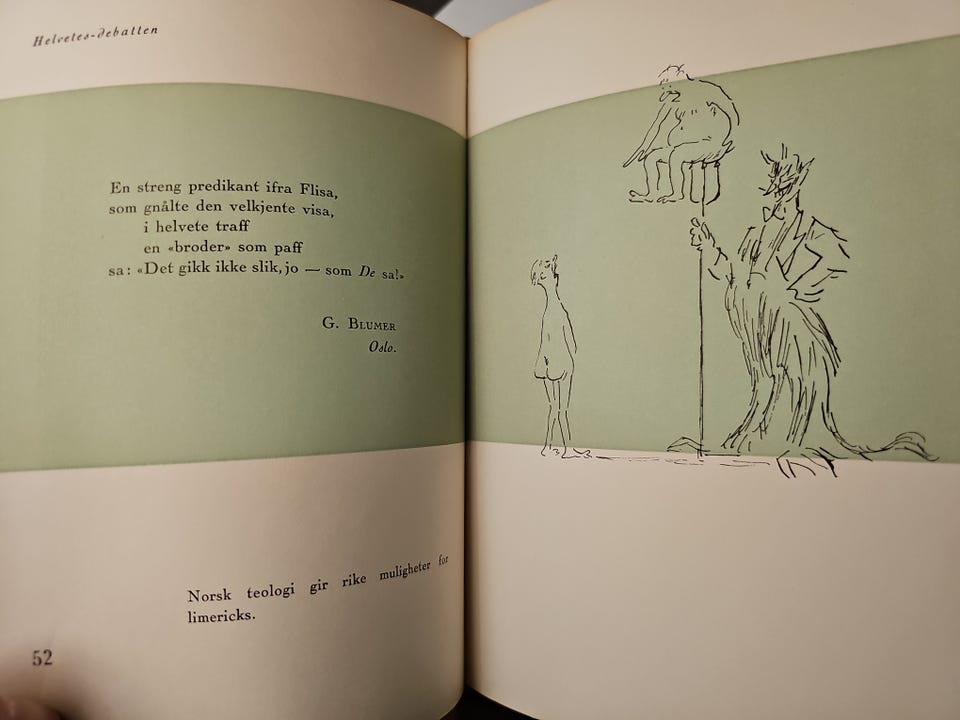 Helvetes-debatten
En streng predikant ifra Flisa,
som gnålte den velkjente visa,
i helvete traff
en «broder» som paff
sa: «Det gikk ikke slik, jo — som De sa!»
G. BLUMER
Oslo.
Norsk teologi gir rike muligheter for
limericks.
52